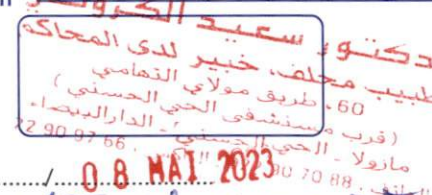 دكتور سعيد
طبيب محلف، خبير لدى المحاكم
60، طريق مولاي التهامي
(قرب مستشفى الحي الحسني)
مازولا - الحي الحسني - الدار البيضاء
22 90 97 66
90 70 88
/ 08 MAI 2023